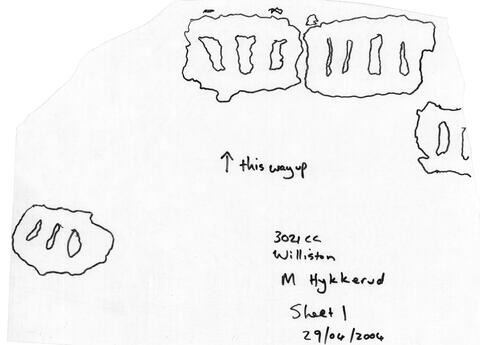 ↑ this way up
3021 CC
Williston
M Hykkerud
Sheet 1
29/04/2004